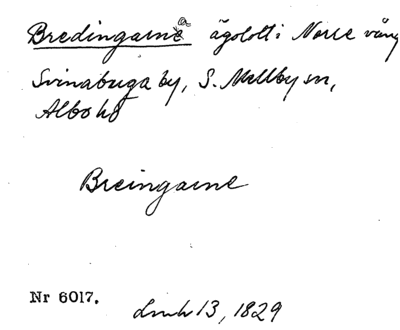 Bredingarne ägolott i Norre vång
Svinaberga by, S. Mellby sn,
Albo hd
Breingarne
Nr 6017.
Lmh 13, 1829